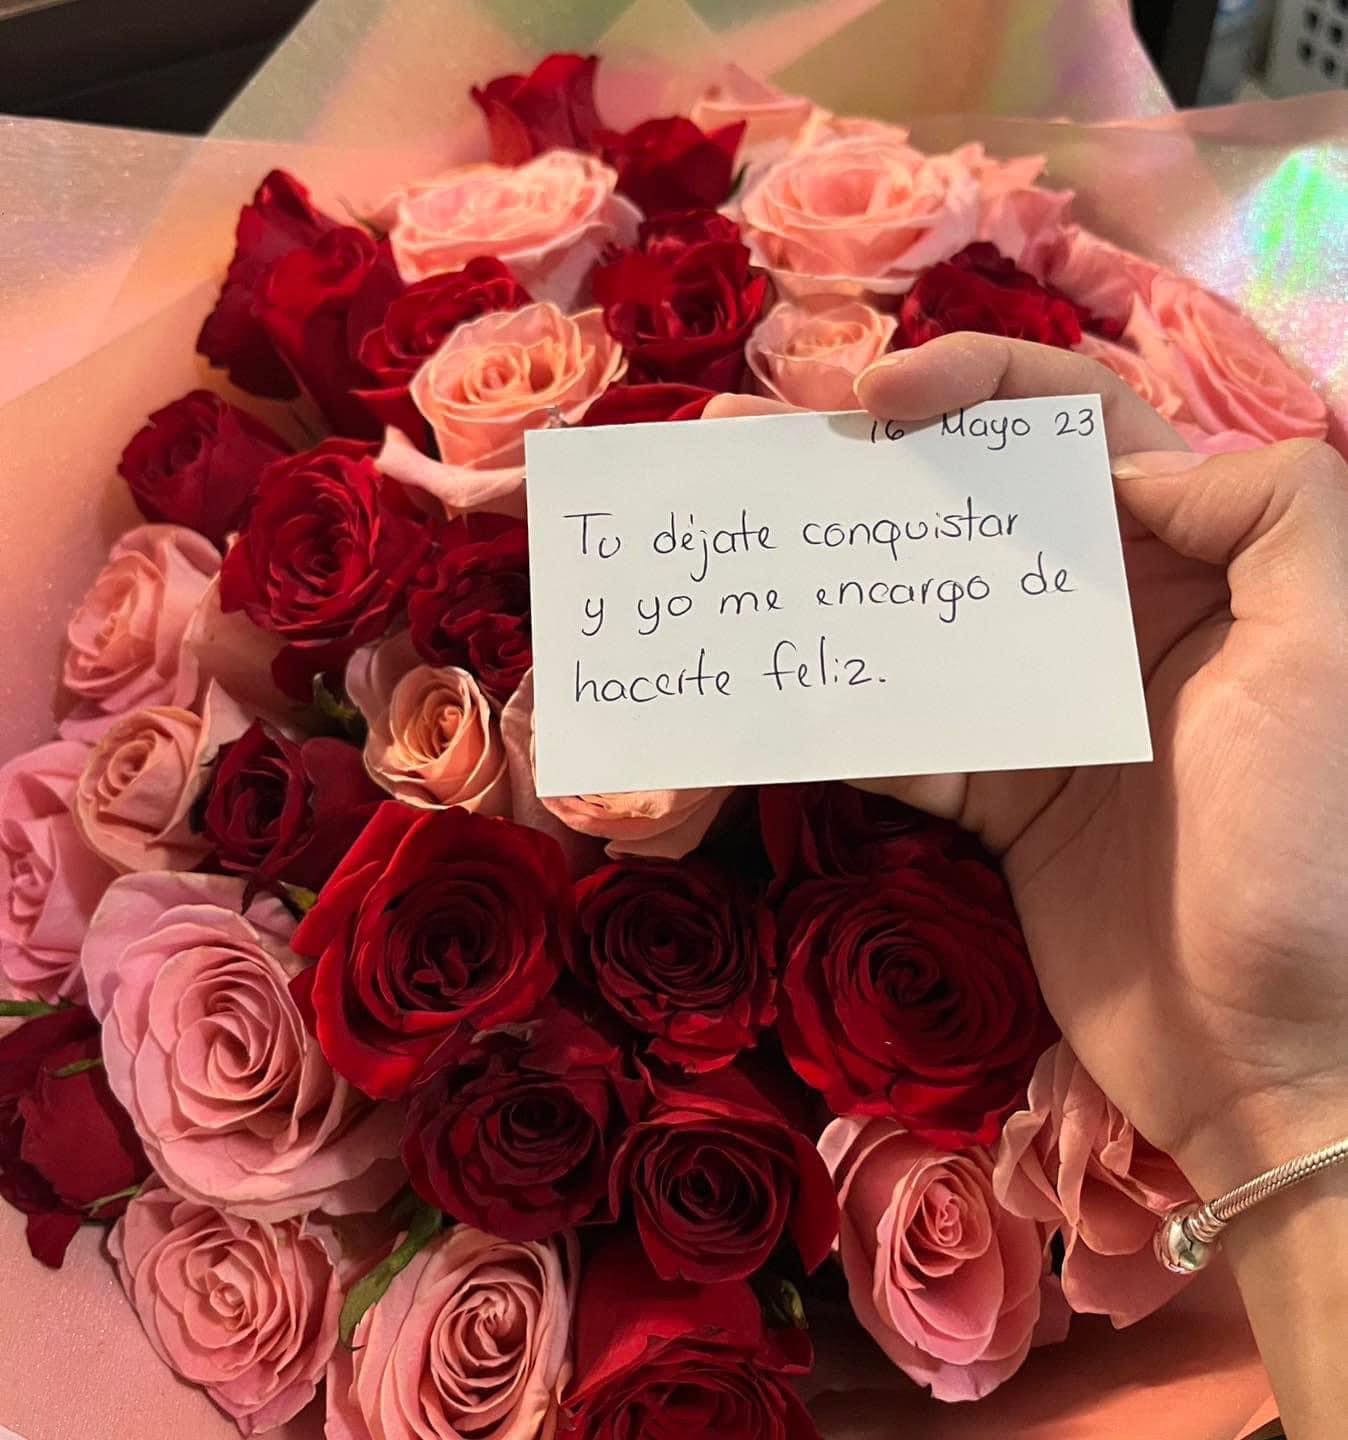 16 Mayo 23
Tu déjate conquistar
y yo me encargo de
hacerte feliz.